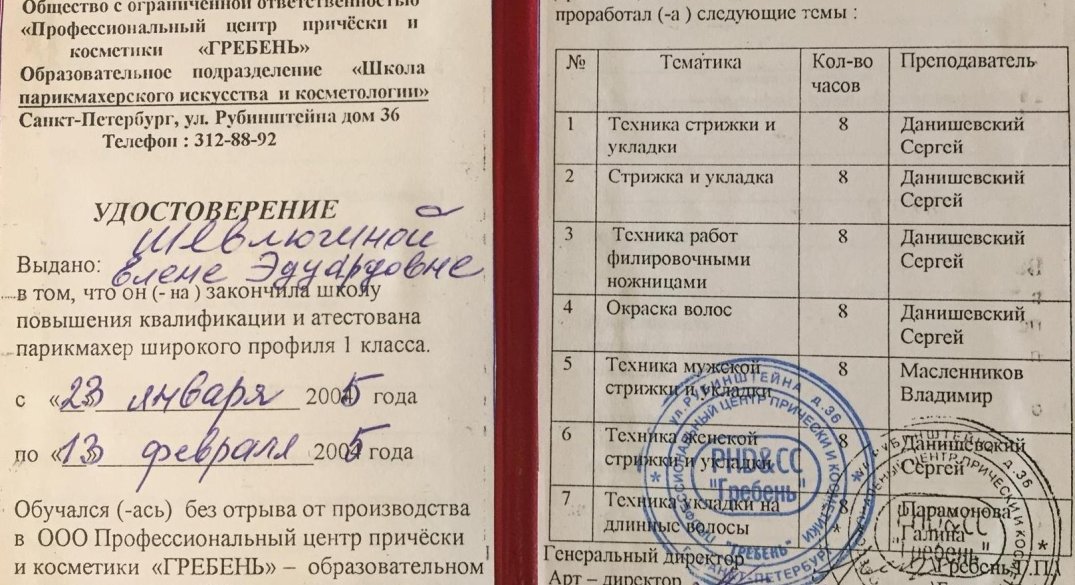 Общество с ограниченной ответственностью
«Профессиональный центр причёски и
косметики «ГРЕБЕНЬ»
Образовательное подразделение «Школа
парикмахерского искусства и косметологии»
Санкт-Петербург, ул. Рубинштейна дом 36
Телефон : 312-88-92
УДОСТОВЕРЕНИЕ
Шевлюгиной
Выдано: Елене Эдуардовне
в том, что он (- на ) закончила школу
повышения квалификации и атестована
парикмахер широкого профиля 1 класса.
с «23 января 2005 года
по «13 февраля 2005 года
Обучался (-ась) без отрыва от производства
в ООО Профессиональный центр причёски
и косметики «ГРЕБЕНЬ» – образовательном
проработал (-а ) следующие темы :
№ Тематика Кол-во Преподаватель
часов
1 Техника стрижки и 8 Данишевский
укладки Сергей
2 Стрижка и укладка 8 Данишевский
Сергей
3 Техника работ 8 Данишевский
филировочными Сергей
ножницами
4 Окраска волос 8 Данишевский
Сергей
5 Техника мужской 8 Масленников
стрижки и укладки Владимир
6 Техника женской 8 Данишевский
стрижки и укладки Сергей
7 Техника укладки на 8 Парамонова
длинные волосы Галина
Генеральный директор Гребень
Арт – директор
ул. РУБИНШТЕЙНА д.36
ПРОФЕССИОНАЛЬНЫЙ ЦЕНТР ПРИЧЕСКИ И КОСМЕТИКИ
PHD&CC
"Гребень"
"ГРЕБЕНЬ"
САНКТ-ПЕТЕРБУРГ
PHD&CC
"Гребень"